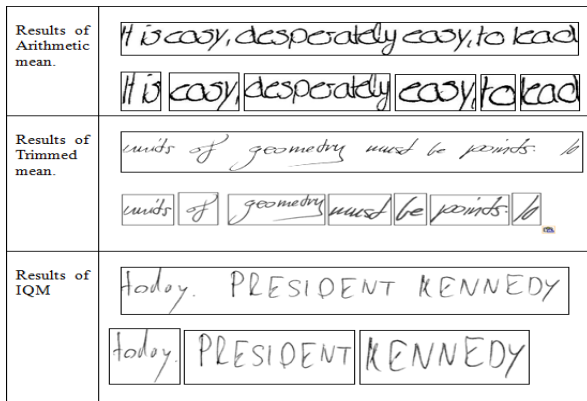 Results of
Arithmetic
mean.
It is easy, desperately easy, to lead
It is easy, desperately easy, to lead
Results of
Trimmed
mean.
units of geometry must be points. to
units of geometry must be points. to
Results of
IQM
today. PRESIDENT KENNEDY
today. PRESIDENT KENNEDY